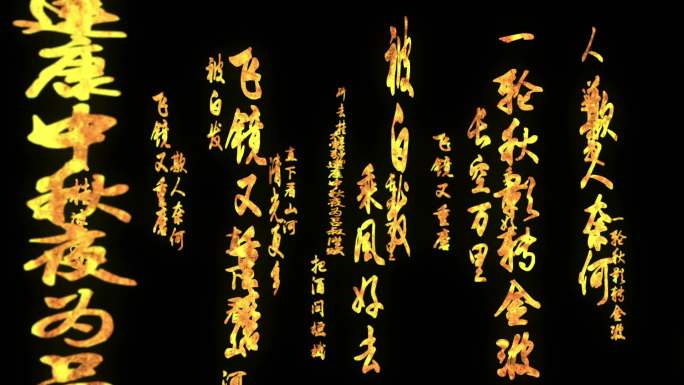 一轮秋影转金波
人欺人奈何
一轮秋影转金波
长空万里
飞镜又重磨
被白发
乘风好去
把酒问姮娥
斫去桂
直下看山河
清光更多
飞镜又
山河
被白发
欺人奈何
飞镜又重磨
建康中秋夜为